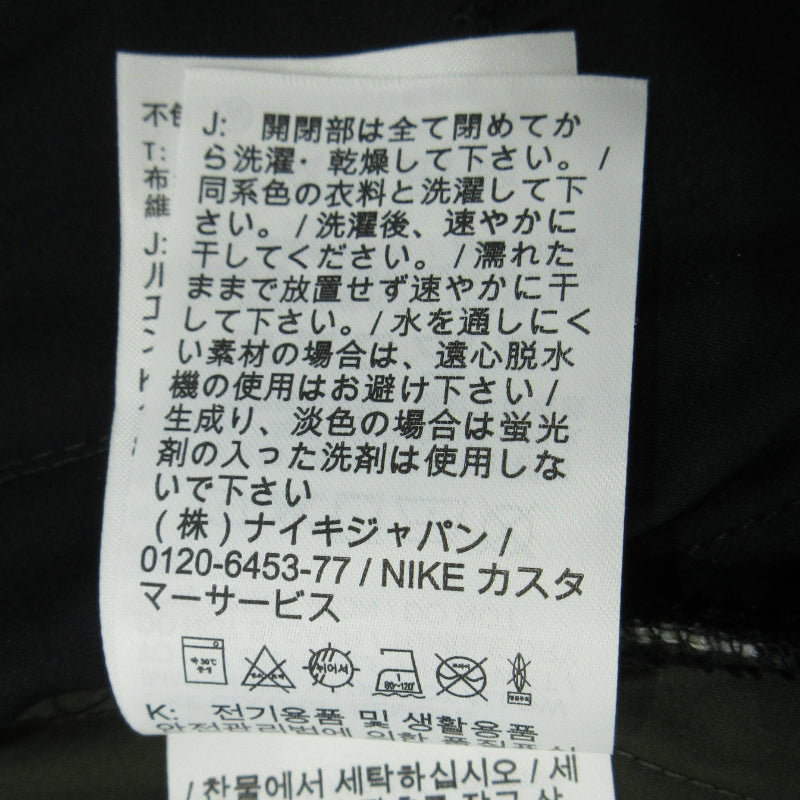 J: 開閉部は全て閉めてか
ら洗濯・乾燥して下さい。/
同系色の衣料と洗濯して下
さい。/洗濯後、速やかに
干してください。/濡れた
ままで放置せず速やかに干
して下さい。/水を通しにく
い素材の場合は、遠心脱水
機の使用はお避け下さい/
生成り、淡色の場合は蛍光
剤の入った洗剤は使用しな
いで下さい
(株)ナイキジャパン/
0120-6453-77 / NIKE カスタ
マーサービス
K: 전기용품 및 생활용품
안전관리법에 의한 품질표시
/ 찬물에서 세탁하십시오 / 세
不
T:
布
維
J: